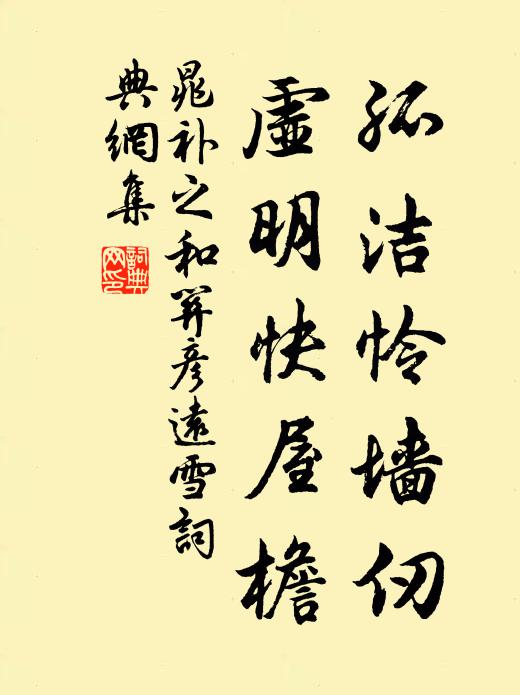 孤洁怜墙仞
虚明快屋檐
晁补之和关彦远雪詞
典網集
詞典网印